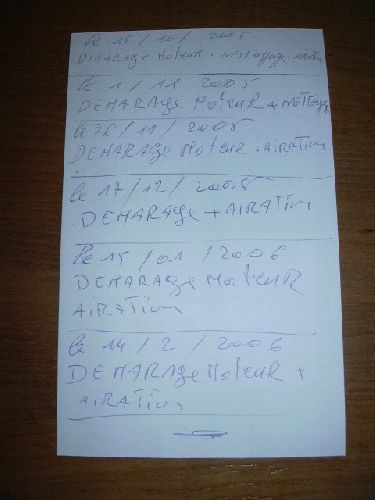 le 15/10/2005
DEMARAGE MoteuR + nettoyage
le 1/11 2005
DEMARAGE MoteuR + NETToyage
le 26/11/2005
DEMARAGE MoteuR + AiRATion
le 17/12/2005
DEMARAGe + AiRATion
le 15/01/2006
DEMARAGe MoteuR
AiRATion
le 14/2/2006
DEMARAGe MoteuR +
AiRATion